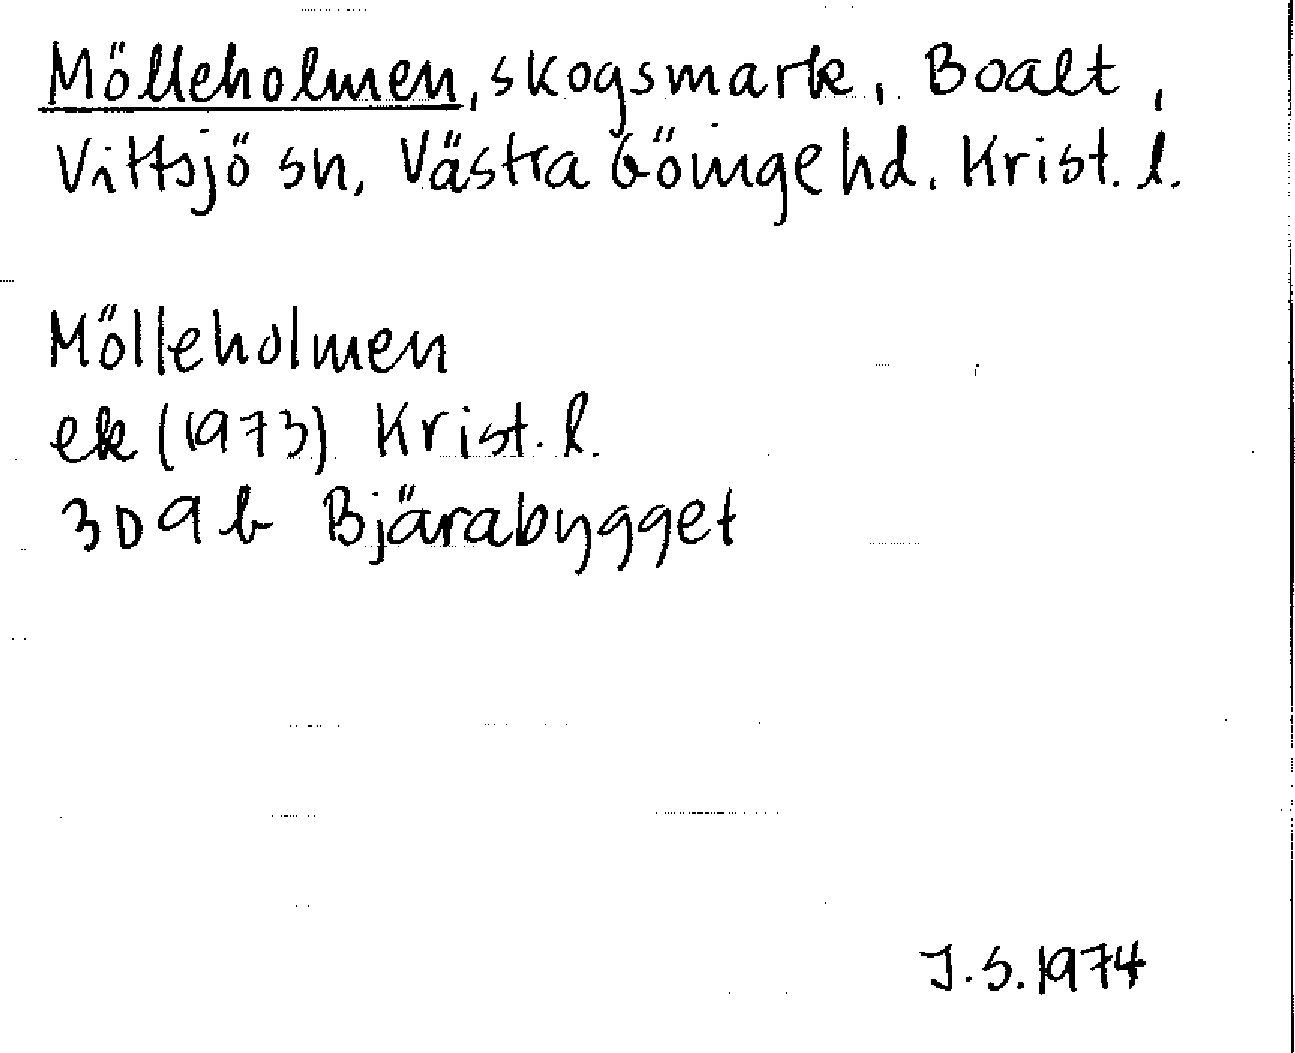 Mölleholmen, skogsmark, Boalt,
Vittsjö sn, Västra Göinge hd. Krist. l.
Mölleholmen
ek (1973) Krist. l.
3D9b Bjärabygget
J.S. 1974